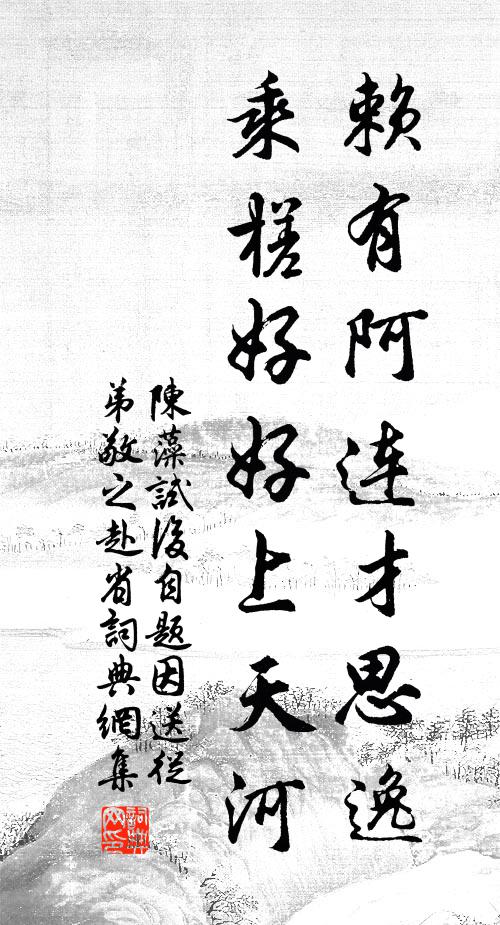 賴有阿连才思逸
乘槎好好上天河
陳藻試後自題因送從
弟敬之赴省詞典網集